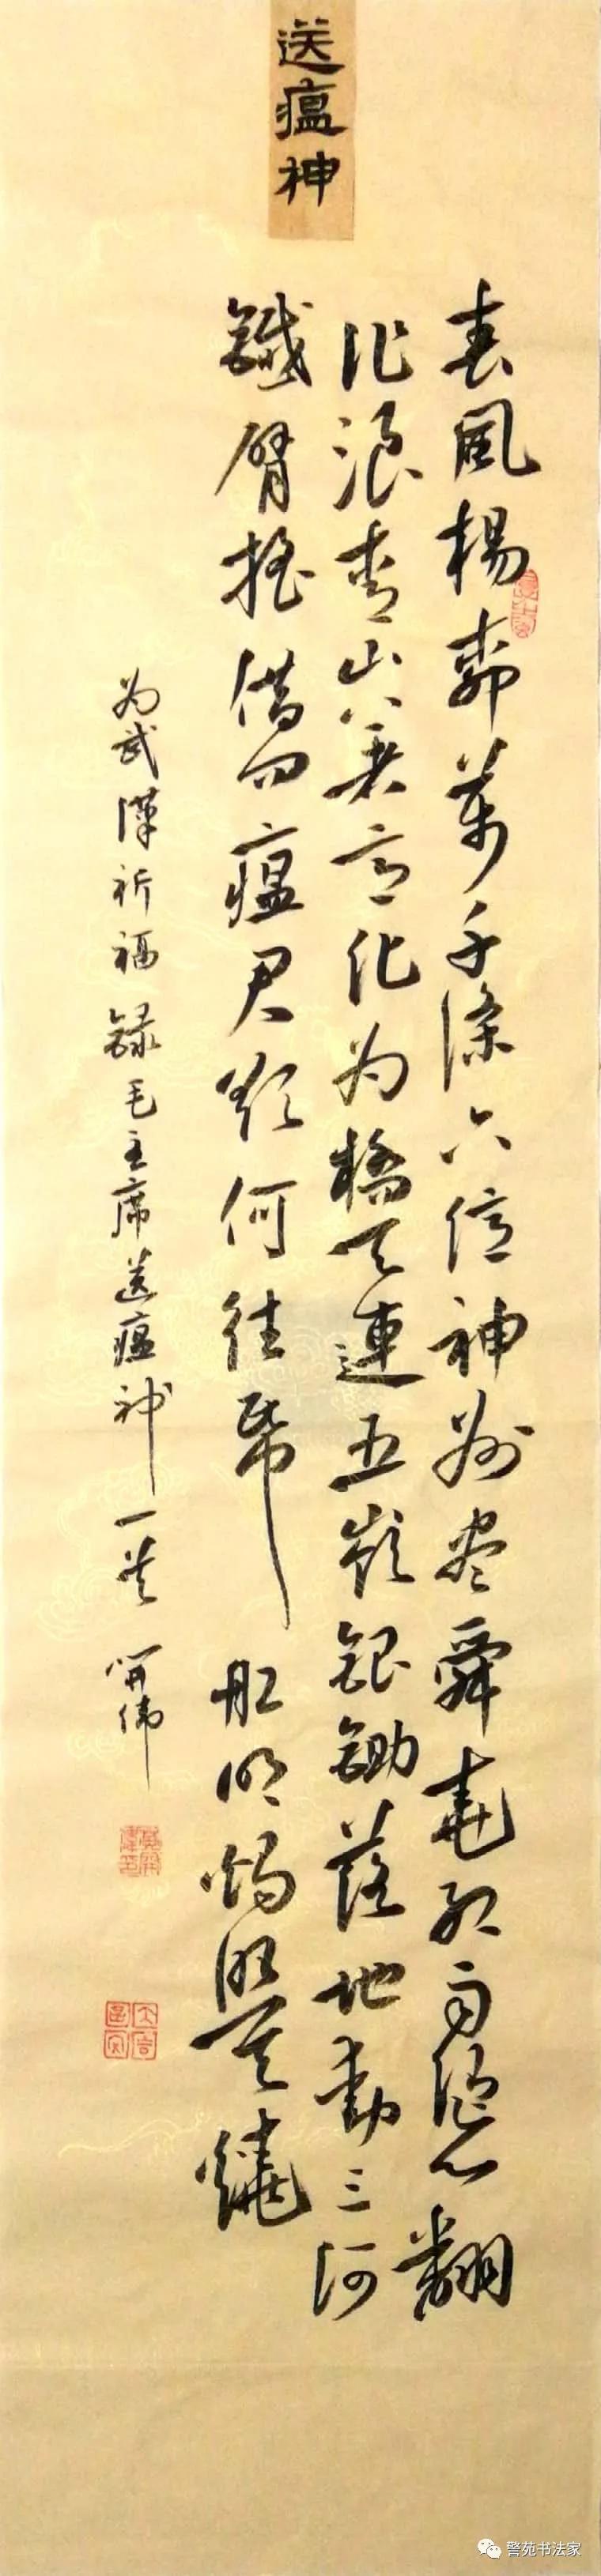 送瘟神
春風楊柳萬千條六億神州尽舜堯紅雨隨心翻
作浪青山著意化为橋天連五嶺銀鋤落地動三河
鐵臂摇借问瘟君欲何往帋舡明燭照天燒
为武漢祈福録毛主席送瘟神一首 開偉
警苑书法家